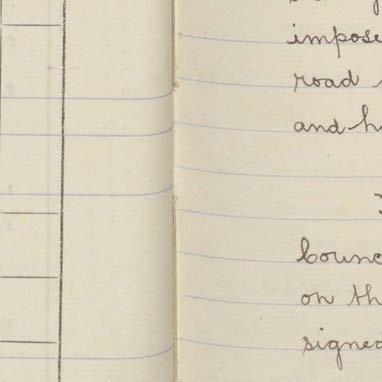 impose
road
and h
Counc
on th
signed